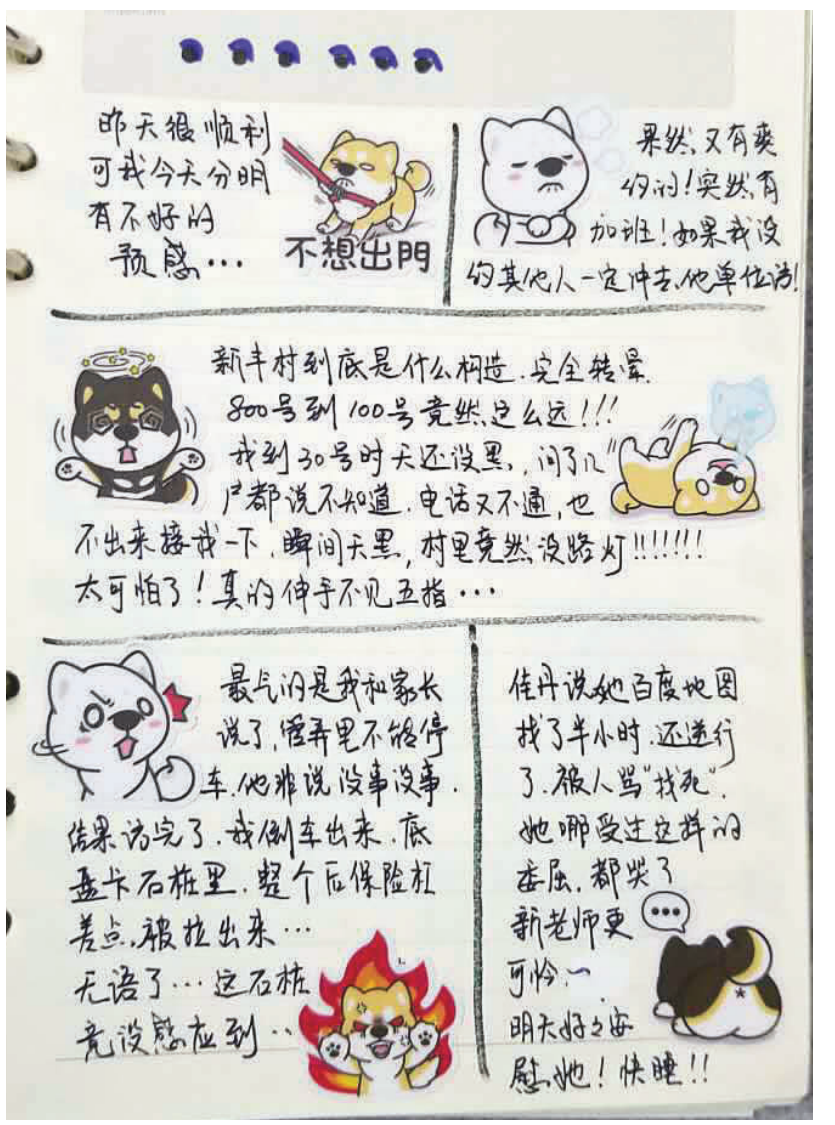 昨天很顺利
可我今天分明
有不好的
预感…
不想出門
果然,又有爽
约的!突然有
加班!如果我没
约其他人一定冲去他单位访!
新丰村到底是什么构造.完全转晕.
800号到100号竟然这么远!!!
我到30号时天还没黑,问了几
户都说不知道.电话又不通,也
不出来接我一下,瞬间天黑,村里竟然没路灯!!!!!!!
太可怕了!真的伸手不见五指…
最气的是我和家长
说了,弄里不能停
车.他非说没事没事.
结果访完了.我倒车出来.底
盘卡石桩里.整个后保险杠
差点被拉出来…
无语了…这石桩
竟没感应到..
佳丹说她百度地图
找了半小时.还逆行
了.被人骂"找死".
她哪受过这样的
委屈.都哭了
新老师更
可怜.~
明天好好安
慰她!快睡!!